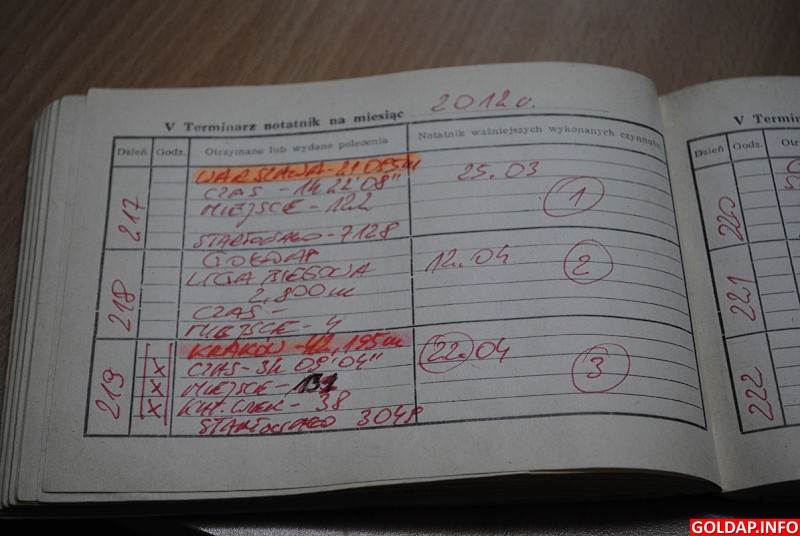 V Terminarz notatnik na miesiąc 2012r.
Dzień Godz. Otrzymane lub wydane polecenia Notatnik ważniejszych wykonanych czynności
217 WARSZAWA - 21.095m 25.03
CZAS - 1h 22'08"
MIEJSCE - 122 1
STARTOWAŁO - 7128
218 GOŁDAP 12.04 2
LIGA BIEGOWA
2,800m
CZAS -
MIEJSCE - 4
219 KRAKÓW - 42,195m 22.04
X CZAS - 3h 09'04" 3
X MIEJSCE -
X KAT. WIEK - 38
STARTOWAŁO 3048
V Termin
Dzień Godz.
220
221
222
GOLDAP.INFO